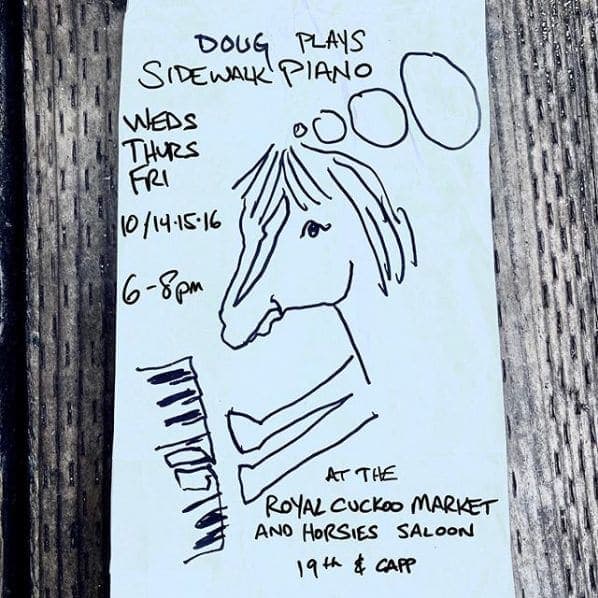 DOUG PLAYS
SIDEWALK PIANO
WEDS
THURS
FRI
10/14·15·16
6-8pm
AT THE
ROYAL CUCKOO MARKET
AND HORSIES SALOON
19th & CAPP